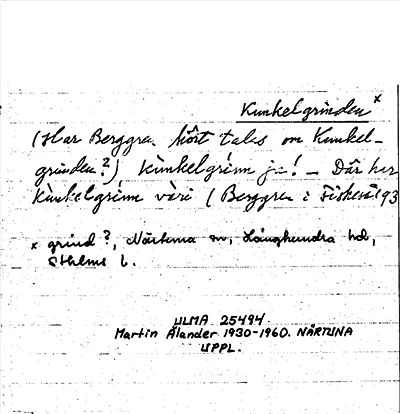 Kunkelgrinden x
(Har Berggren hört talas om Kunkel-
grinden?) Kùnkelgrínn ja! — Där har
Kùnkelgrínn vàri (Berggren i Fiskesä 193
x grind?, Närtuna sn, Långhundra hd,
Sthlms l.
ULMA 25494
Martin Ålander 1930-1960. NÄRTUNA
UPPL.